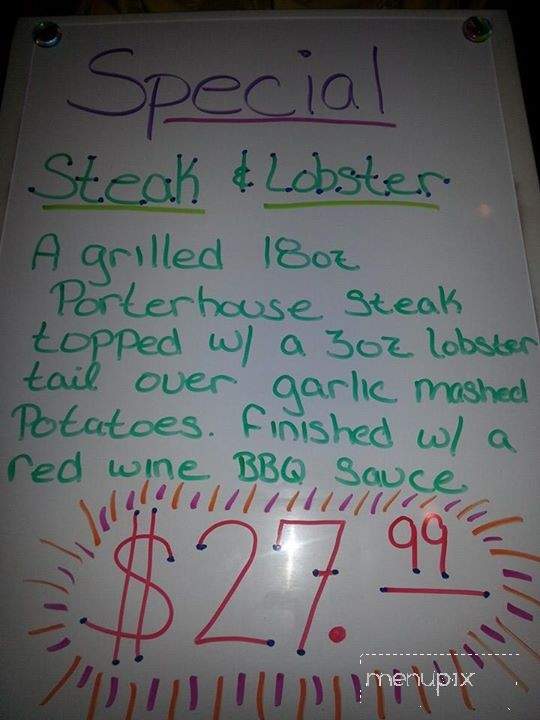 Special
Steak & Lobster
A grilled 18oz
Porterhouse steak
topped w/ a 3oz lobster
tail over garlic mashed
Potatoes. finished w/ a
red wine BBQ sauce
$27.99
menupix